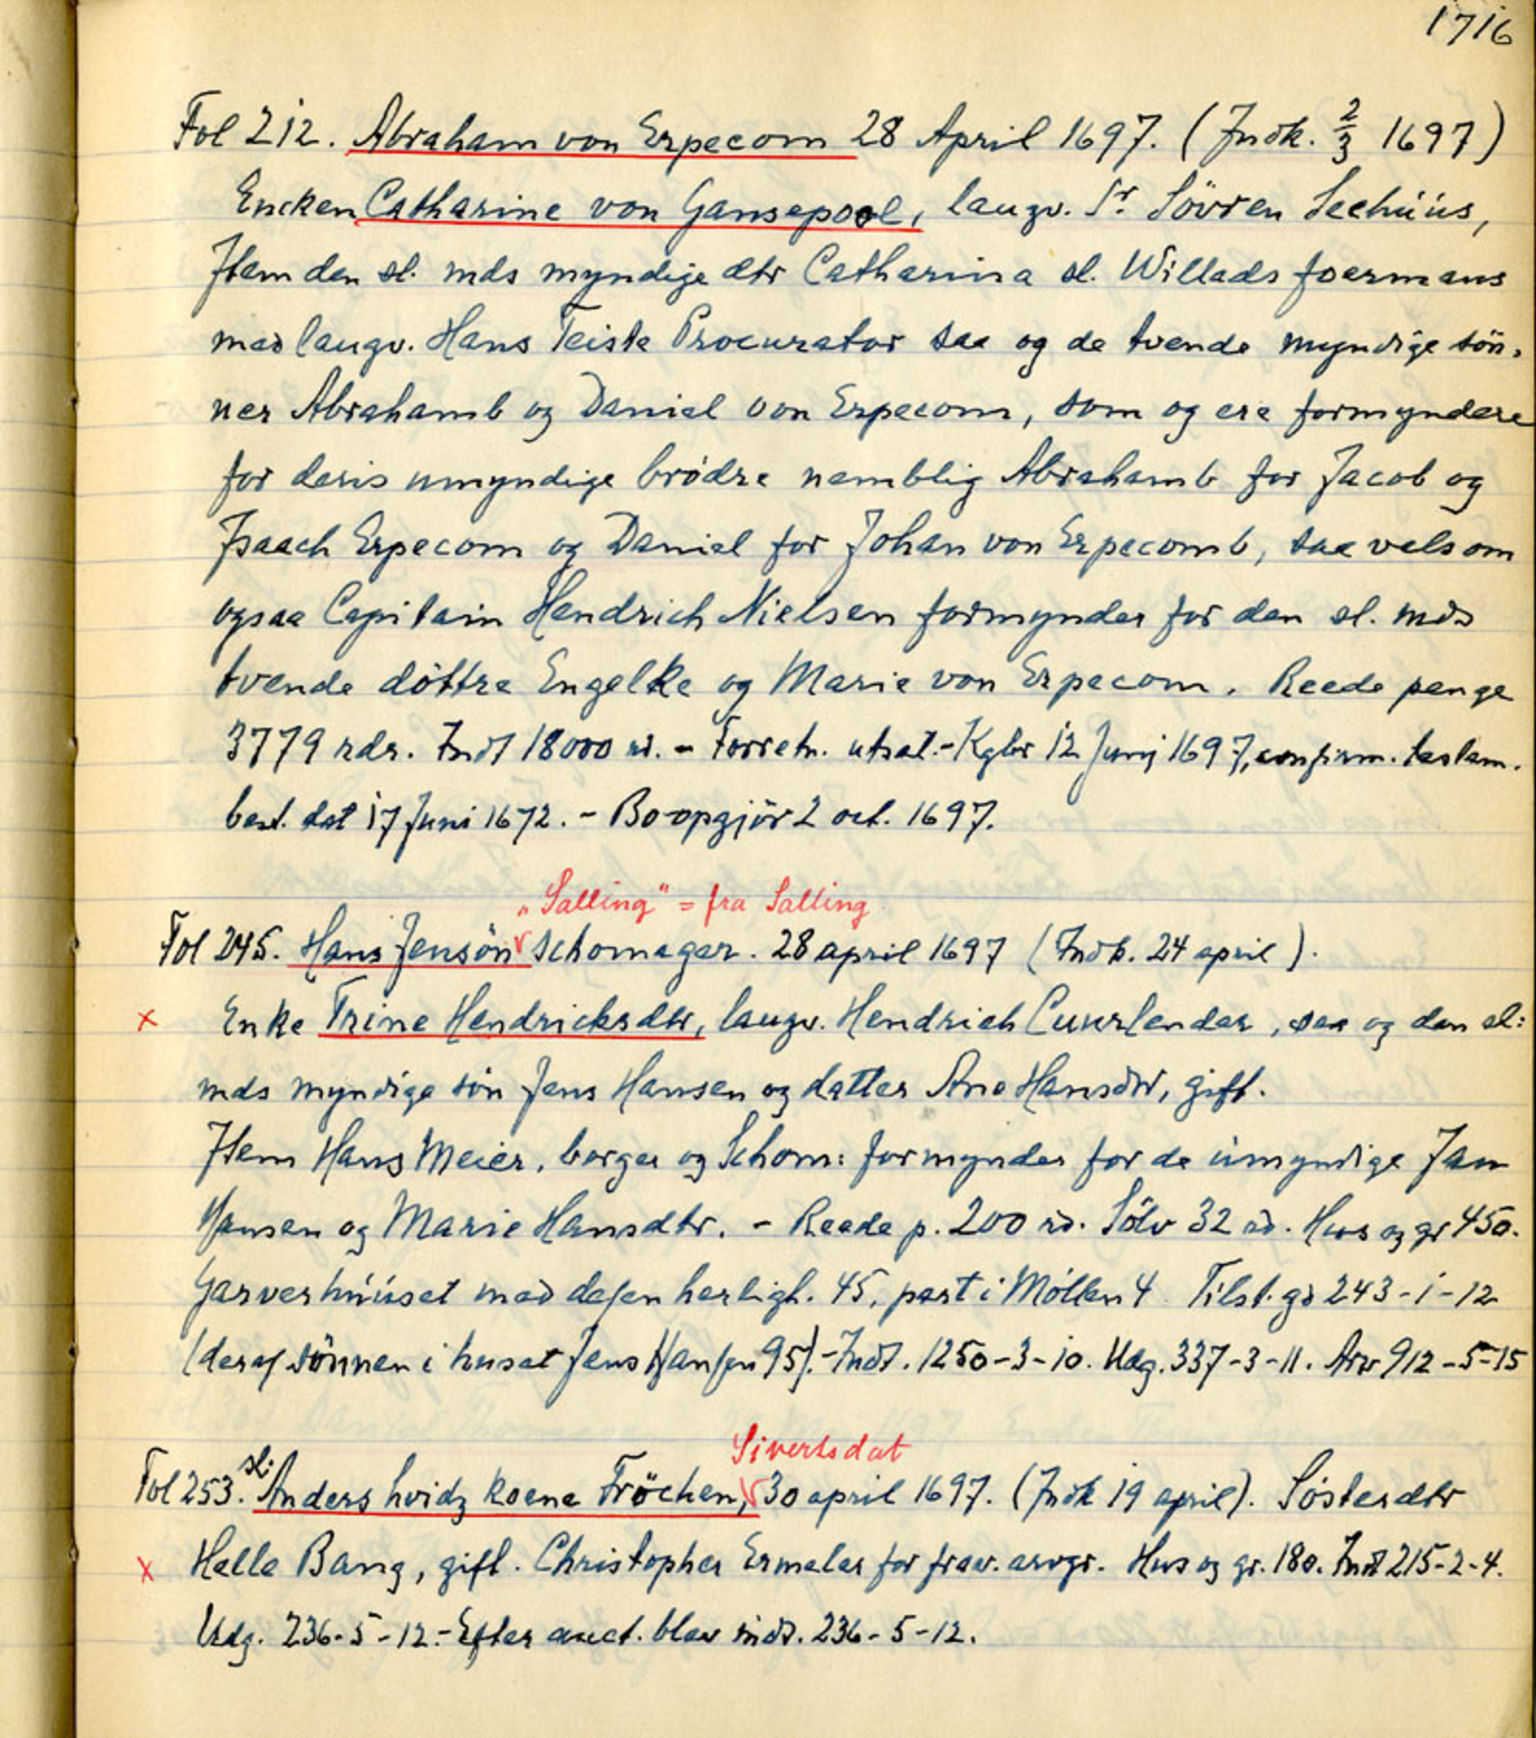 1716
Fol 212. Abraham von Erpecom 28 April 1697. (Indk. 2/3 1697)
Encken Catharine von Gansepoel, laugv. Sr. Sövren Seehúús,
Item den sl. mds myndige dtr Catharina sl. Willads foermans
med laugv. Hans Teiste Procurator saa og de tvende myndige sön-
ner Abrahamb og Daniel von Erpecom, som og ere formyndere
for deris umyndige brödre nemblig Abrahamb for Jacob og
Isaach Erpecom og Daniel for Johan von Erpecomb, saa velsom
ogsaa Capitain Hendrich Nielsen formynder for den sl. mds
tvende döttre Engelke og Marie von Erpecom. Reede penge
3779 rdr. Indt 18000 rd. - Forretn. utsat. - Kgbr 12 Junj 1697, confirm. testam.
best. dat 17 Juni 1672. - Bo-opgjör 2 oct. 1697.
"Salling" = fra Salling
Fol 245. Hans Jensön schomager. 28 april 1697 (Indk. 24 april).
x Enke Trine Hendricksdtr, laugv. Hendrich Cuurlender, saa og den sl:
mds myndige sön Jens Hansen og datter Ane Hansdtr, gift.
Item Hans Meier, borger og Schom: formynder for de úmyndige Jan
Hansen og Marie Hansdtr. - Reede p. 200 rd. Sölv 32 rd. Hus og gr 450.
Garverhúúset med desen herligh. 45, part i Möllen 4 Tilst. gd 243-1-12
(deraf sönnen i huset Jens Hansen 95). - Indt. 1250-3-10. Udg. 337-3-11. Arv 912-5-15
Sivertsdat
Fol 253. sl: Anders hvidz koene Fröchen, 30 april 1697. (Indk 19 april). Sösterdtr
x Helle Bang, gift. Christopher Ermeler for frav. arvgr. Hus og gr. 180. Indt 215-2-4.
Udg. 236-5-12. - Efter auct. blev indt. 236-5-12.